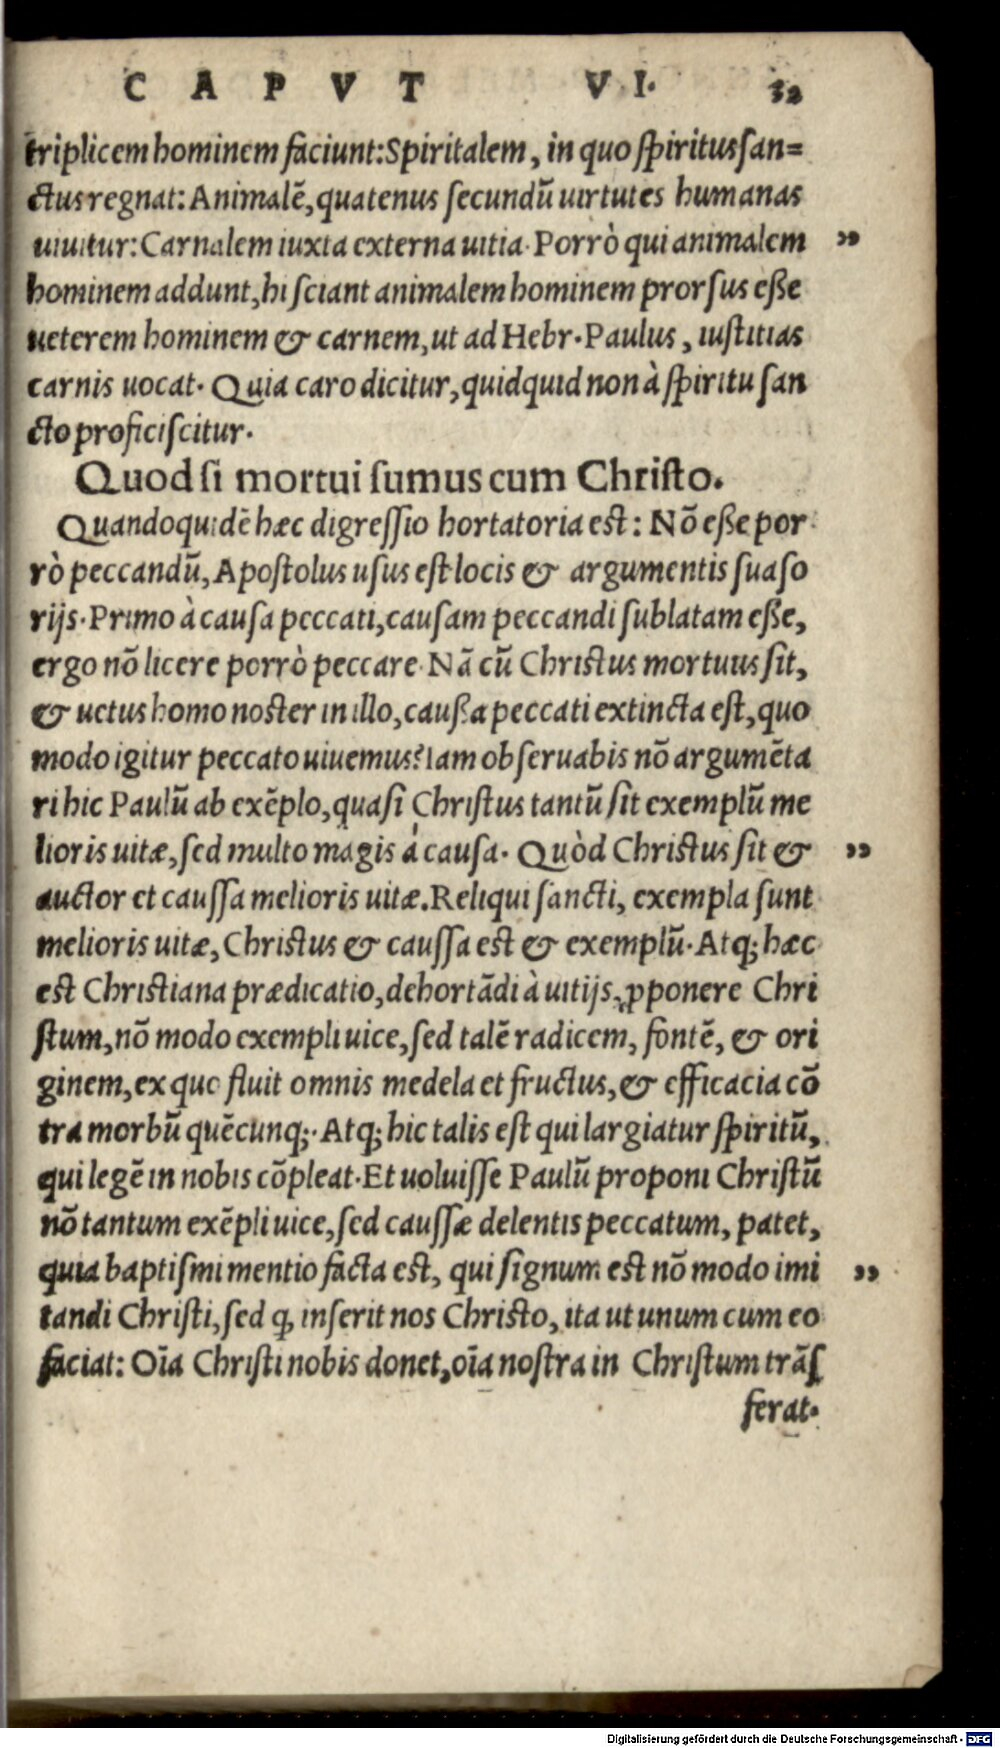 CAPVT VI. 32
triplicem hominem faciunt: Spiritalem, in quo ſpiritus ſan=
ctus regnat: Animalē, quatenus ſecundū uirtutes humanas
uiuitur: Carnalem iuxta externa uitia. Porrò qui animalem ”
hominem addunt, hi ſciant animalem hominem prorſus eße
ueterem hominem & carnem, ut ad Hebr. Paulus, iuſtitias
carnis uocat. Quia caro dicitur, quidquid non à ſpiritu ſan
cto proficiſcitur.
Quod ſi mortui ſumus cum Chriſto.
Quandoquidē hæc digreſſio hortatoria est: Nō eße por
rò peccandū, Apoſtolus uſus eſt locis & argumentis ſuaſo
rijs. Primo à cauſa peccati, cauſam peccandi ſublatam eße,
ergo nō licere porrò peccare. Nā cū Chriſtus mortuus ſit,
& uetus homo noſter in illo, cauß a peccati extincta eſt, quo
modo igitur peccato uiuemus? Iam obſeruabis nō argumēta
ri hic Paulū ab exēplo, quaſi Chriſtus tantū ſit exemplū me
lioris uitæ, ſed multo magis à cauſa. Quòd Chriſtus ſit & ”
auctor et cauſſa melioris uitæ. Reliqui ſancti, exempla ſunt
melioris uitæ, Chriſtus & cauſſa eſt & exemplū. Atq; hæc
eſt Chriſtiana prædicatio, dehortādi à uitijs, ꝓponere Chri
ſtum, nō modo exempli uice, ſed talē radicem, fontē, & ori
ginem, ex quo fluit omnis medela et fructus, & efficacia cō
tra morbū quēcunq;. Atq; hic talis eſt qui largiatur ſpiritū,
qui legē in nobis cōpleat. Et uoluiſſe Paulū proponi Chriſtū
nō tantum exēpli uice, ſed cauſſæ delentis peccatum, patet,
quia baptiſmi mentio facta eſt, qui ſignum eſt nō modo imi ”
tandi Chriſti, ſed ꝙ inſerit nos Chriſto, ita ut unum cum eo
faciat: Oīa Chriſti nobis donet, oīa noſtra in Chriſtum trāſ
ferat.
Digitalisierung gefördert durch die Deutsche Forschungsgemeinschaft - DFG